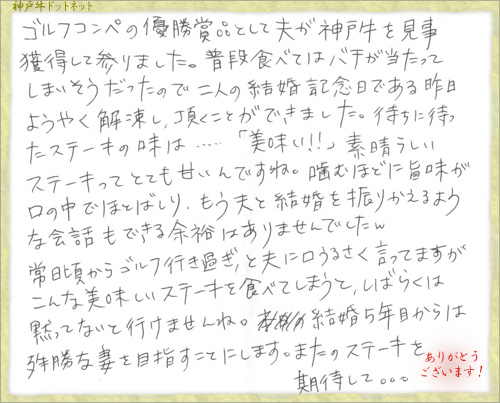 神戸牛ドットネット
ゴルフコンペの優勝賞品として夫が神戸牛を見事
獲得して参りました。普段食べてはバチが当たって
しまいそうだったので二人の結婚記念日である昨日
ようやく解凍し、頂くことができました。待ちに待っ
たステーキの味は……「美味い!!」素晴らしい
ステーキってとても甘いんですね。噛むほどに旨味が
口の中でほとばしり、もう夫と結婚を振りかえるよう
な会話もできる余裕はありませんでしたw
常日頃からゴルフ行き過ぎ、と夫に口うるさく言ってますが
こんな美味しいステーキを食べてしまうと、しばらくは
黙ってないと行けませんね。結婚5年目からは
殊勝な妻を目指すことにします。またのステーキを
期待して。。。
ありがとう
ございます!